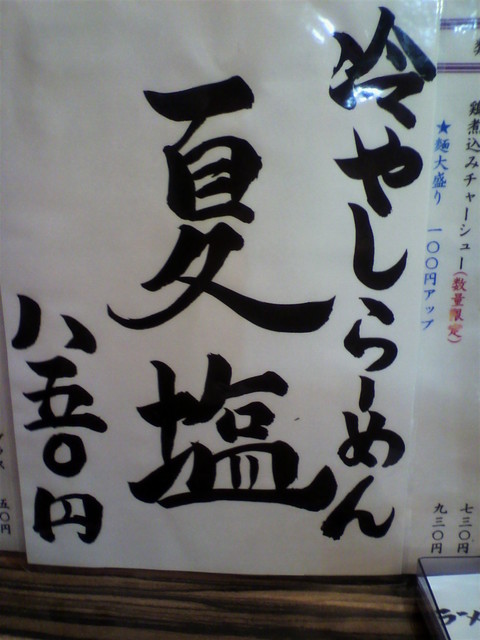 鶏煮込みチャーシュー(数量限定)
★麺大盛り 一〇〇円アップ
七三〇円
九三〇円
冷やしらーめん
夏塩
八五〇円
五〇円